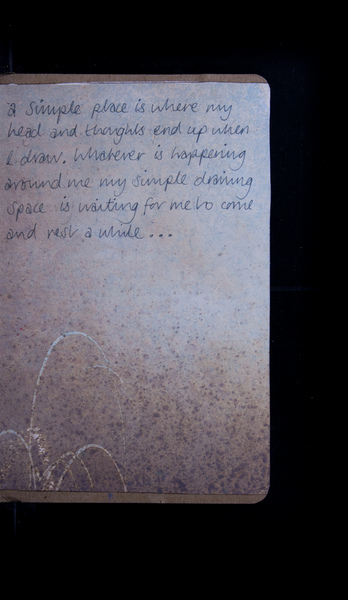 a simple place is where my
head and thoughts end up when
I draw. Whatever is happening
around me my simple drawing
space is waiting for me to come
and rest a while...